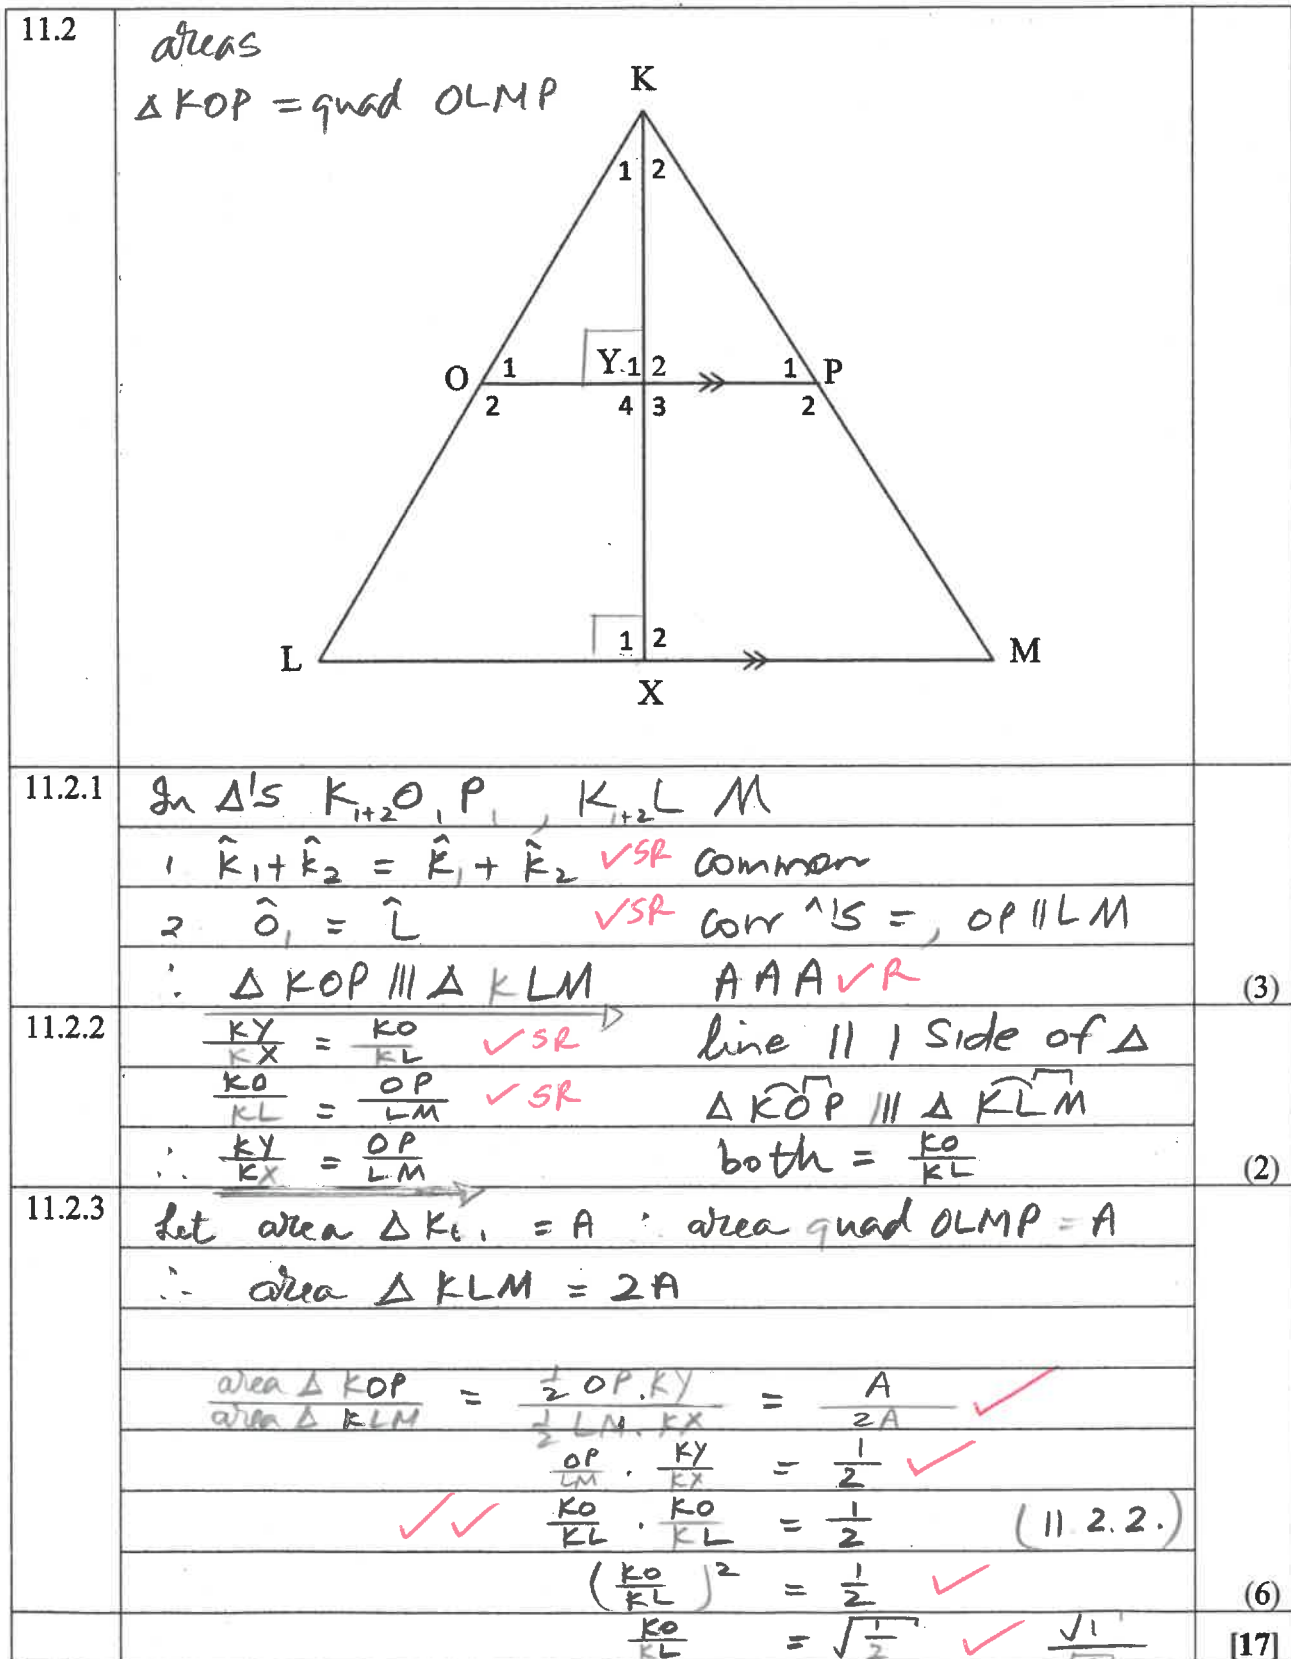 11.2
areas
Δ KOP = quad OLMP
K
1 2
O 1 Y 1 2 1 P
2 4 3 2
L 1 2 M
X
11.2.1 In Δ's K₁₊₂O₁P₁, K₁₊₂L M
1 K̂₁ + K̂₂ = K̂₁ + K̂₂ ✓SR common
2 Ô₁ = L̂ ✓SR corr ^'s =, OP || LM
∴ Δ KOP ||| Δ KLM AAA ✓R (3)
11.2.2 KY/KX = KO/KL ✓SR line || 1 side of Δ
KO/KL = OP/LM ✓SR Δ KOP ||| Δ KLM
∴ KY/KX = OP/LM both = KO/KL (2)
11.2.3 Let area Δ = A ∴ area quad OLMP = A
∴ area Δ KLM = 2A
area Δ KOP / area Δ KLM = ½ OP.KY / ½ LM.KX = A/2A ✓
OP/LM . KY/KX = 1/2 ✓
✓✓ KO/KL . KO/KL = 1/2 (11 2.2.)
(KO/KL)² = 1/2 ✓ (6)
KO/KL = √(1/2) ✓ √1 [17]